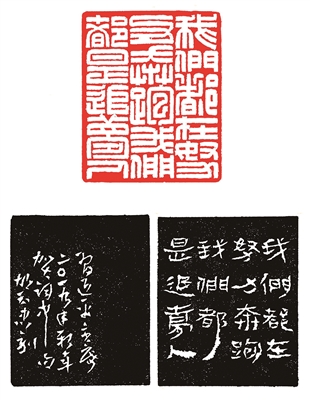 我們都在努
力奔跑我們
都是追夢人
我們都在
努力奔跑
我們都
是追夢人
習近平主席
二〇一九年新年
賀詞中句